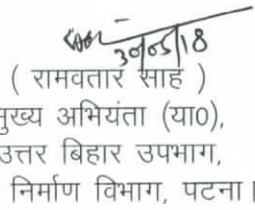 30/05/18
( रामवतार साह )
मुख्य अभियंता (या0),
उत्तर बिहार उपभाग,
निर्माण विभाग, पटना।